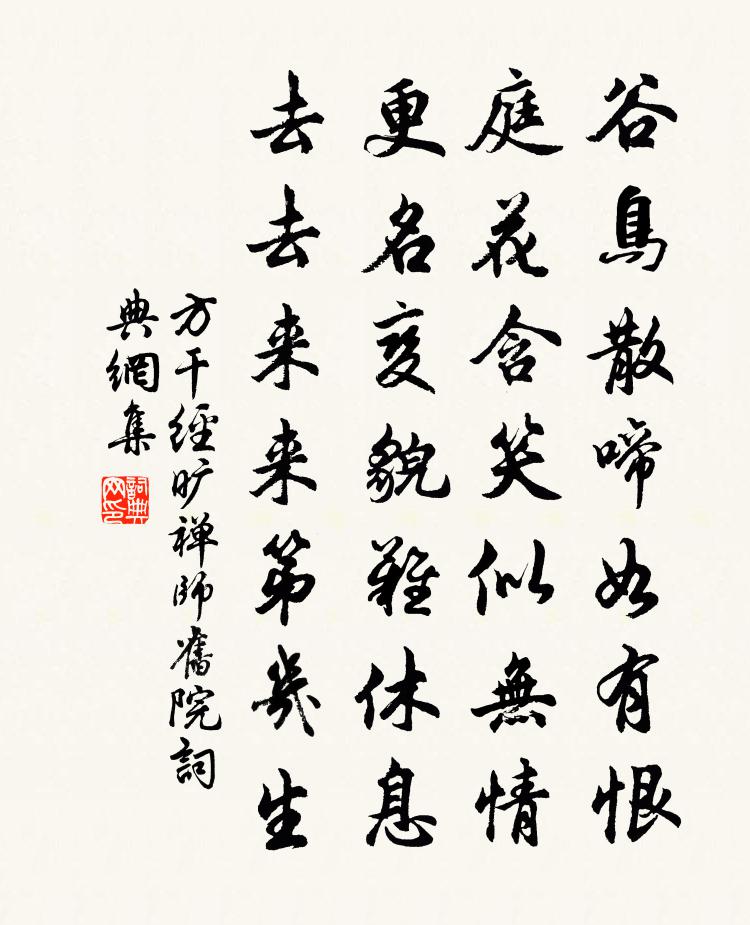 谷鳥散啼如有恨
庭花含笑似無情
更名變貌難休息
去去来来第幾生
方干經曠禅師舊院詞
典網集
詞典网印